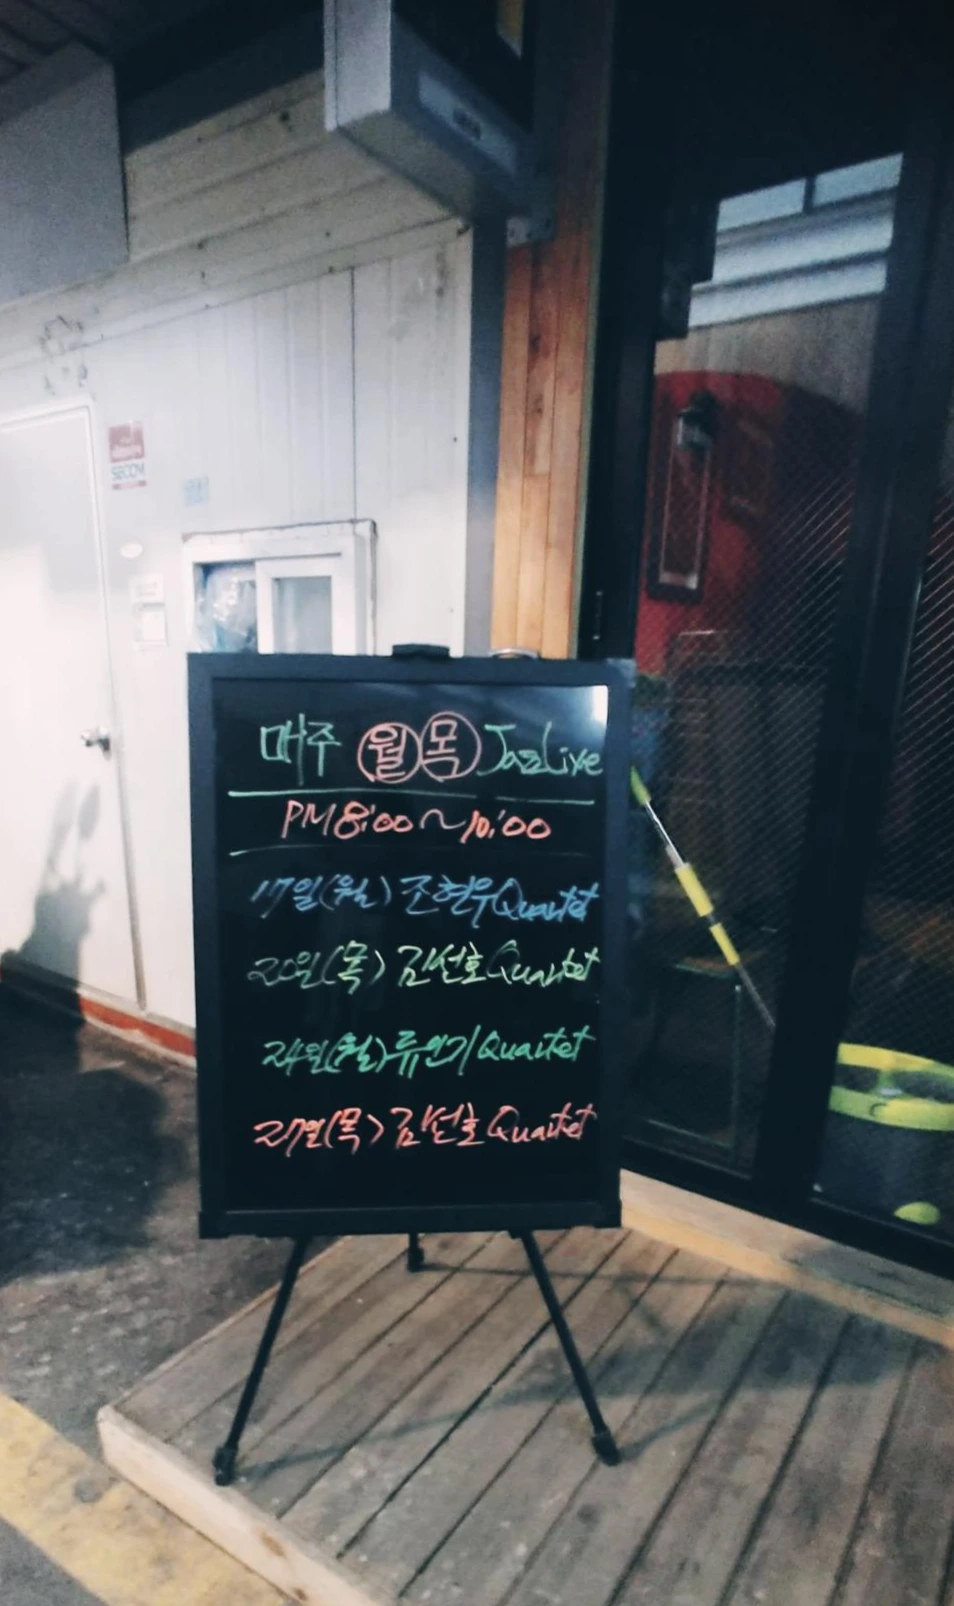 매주 월 목 Jazz Live
PM 8:00~10:00
17일(월) 조현우 Quartet
20일(목) 김선호 Quartet
24일(월) 류인기 Quartet
27일(목) 김선호 Quartet
SECOM